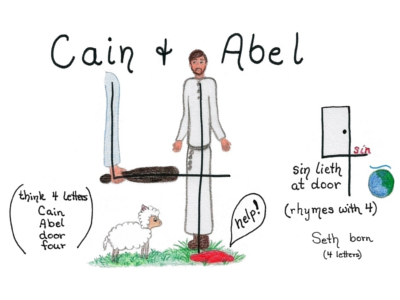 Cain & Abel
think 4 letters
Cain
Abel
door
four
help!
sin
sin lieth
at door
(rhymes with 4)
Seth born
(4 letters)